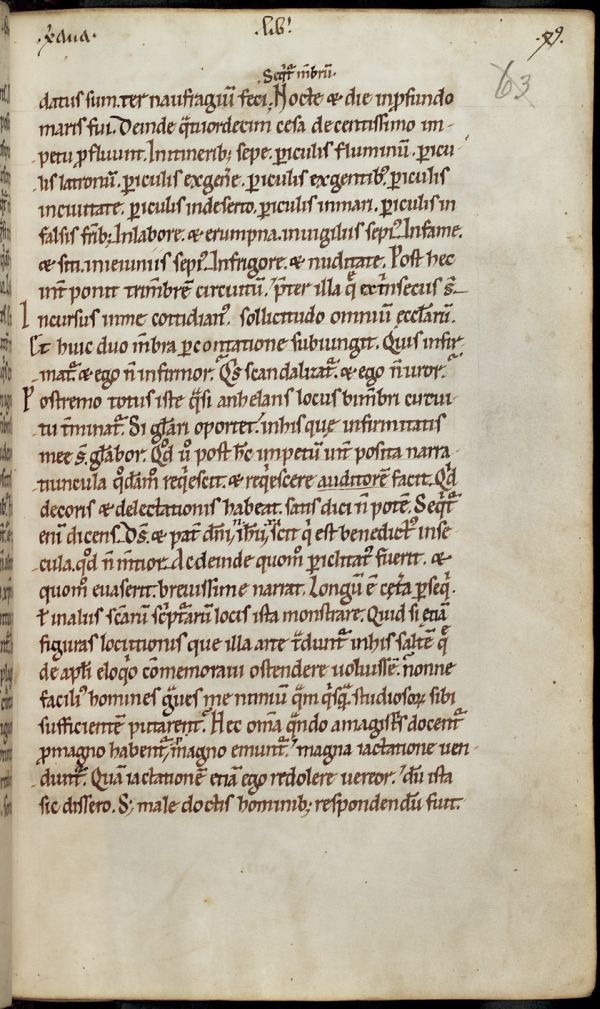 lib'
79.
63
Seqt mbru.
datus sum. ter naufragiū feci. Nocte & die inp̄fundo
maris fui. Deinde q̄tuordecim cesa decentissimo im-
petu ꝓfluunt. Initinerib; sepe. ꝑiculis fluminū. ꝑicu-
lis latronū. ꝑiculis exgen̄e. ꝑiculis exgentib'. ꝑiculis
inciuitate. ꝑiculis indeserto. ꝑiculis inmari. ꝑiculis in
falsis frīb; Inlabore. & erumpna. inuigiliis sepi'. Infame.
& siti. inieiuniis sepi'. Infrigore. & nuditate. Post hec
int̄ponit trimēbrē circuitū. p̄ter illa q̄ ext̄nsecus s̄.
Incursus inme cottidian'. sollicitudo omniū eccl̄arū.
Et huic duo m̄bra ꝑcontatione subiungit. Quis infir-
mat̄. & ego n̄ infirmor. Q̄s scandalizat̄. & ego n̄ uror.
Postremo totus iste q̄si anhelans locus bim̄bri circui-
tu t̄minat̄. Si gl̄ari oportet. inhis que infirmitatis
mee s̄ gl̄abor. Qd̄ u° post h̄c impetū int̄posita narra-
tiuncula qd̄am° req̄escit. & req̄escere auditorē facit. Qd̄
decoris & delectationis habeat. satis dici n̄ potē. Seq̄t̄
enī dicens. D̄s & pat̄ dn̄i n̄ri ih̄u scit q̄ est benedict' inse-
cula. qd̄ n̄ m̄tior. Ac deinde quom° ꝑiclitat' fuerit. &
quom° euaserit. breuissime narrat. Longū ē cet̄a ꝑseq̄.
ł inaliis sc̄arū sc̄pt̄arū locis ista monstrare. Quid si etiā
figuras locutionis que illa arte t̄dunt̄ inhis saltē q̄
de apl̄i eloq̄o cōmemoraui ostendere uoluissē. nonne
facili' homines ḡues me nimiū q̄m q̄sq̄ studiosoꝝ sibi
sufficientē putarent̄. Hec om̄a q̄ndo amagist̄s docent̄
ꝓmagno habent̄. magno emunt̄. magna iactatione uen-
dunt̄. Quā iactationē etiā ego redolere uereor. dū ista
sic dissero. S; male doctis hominib; respondendū fuit.